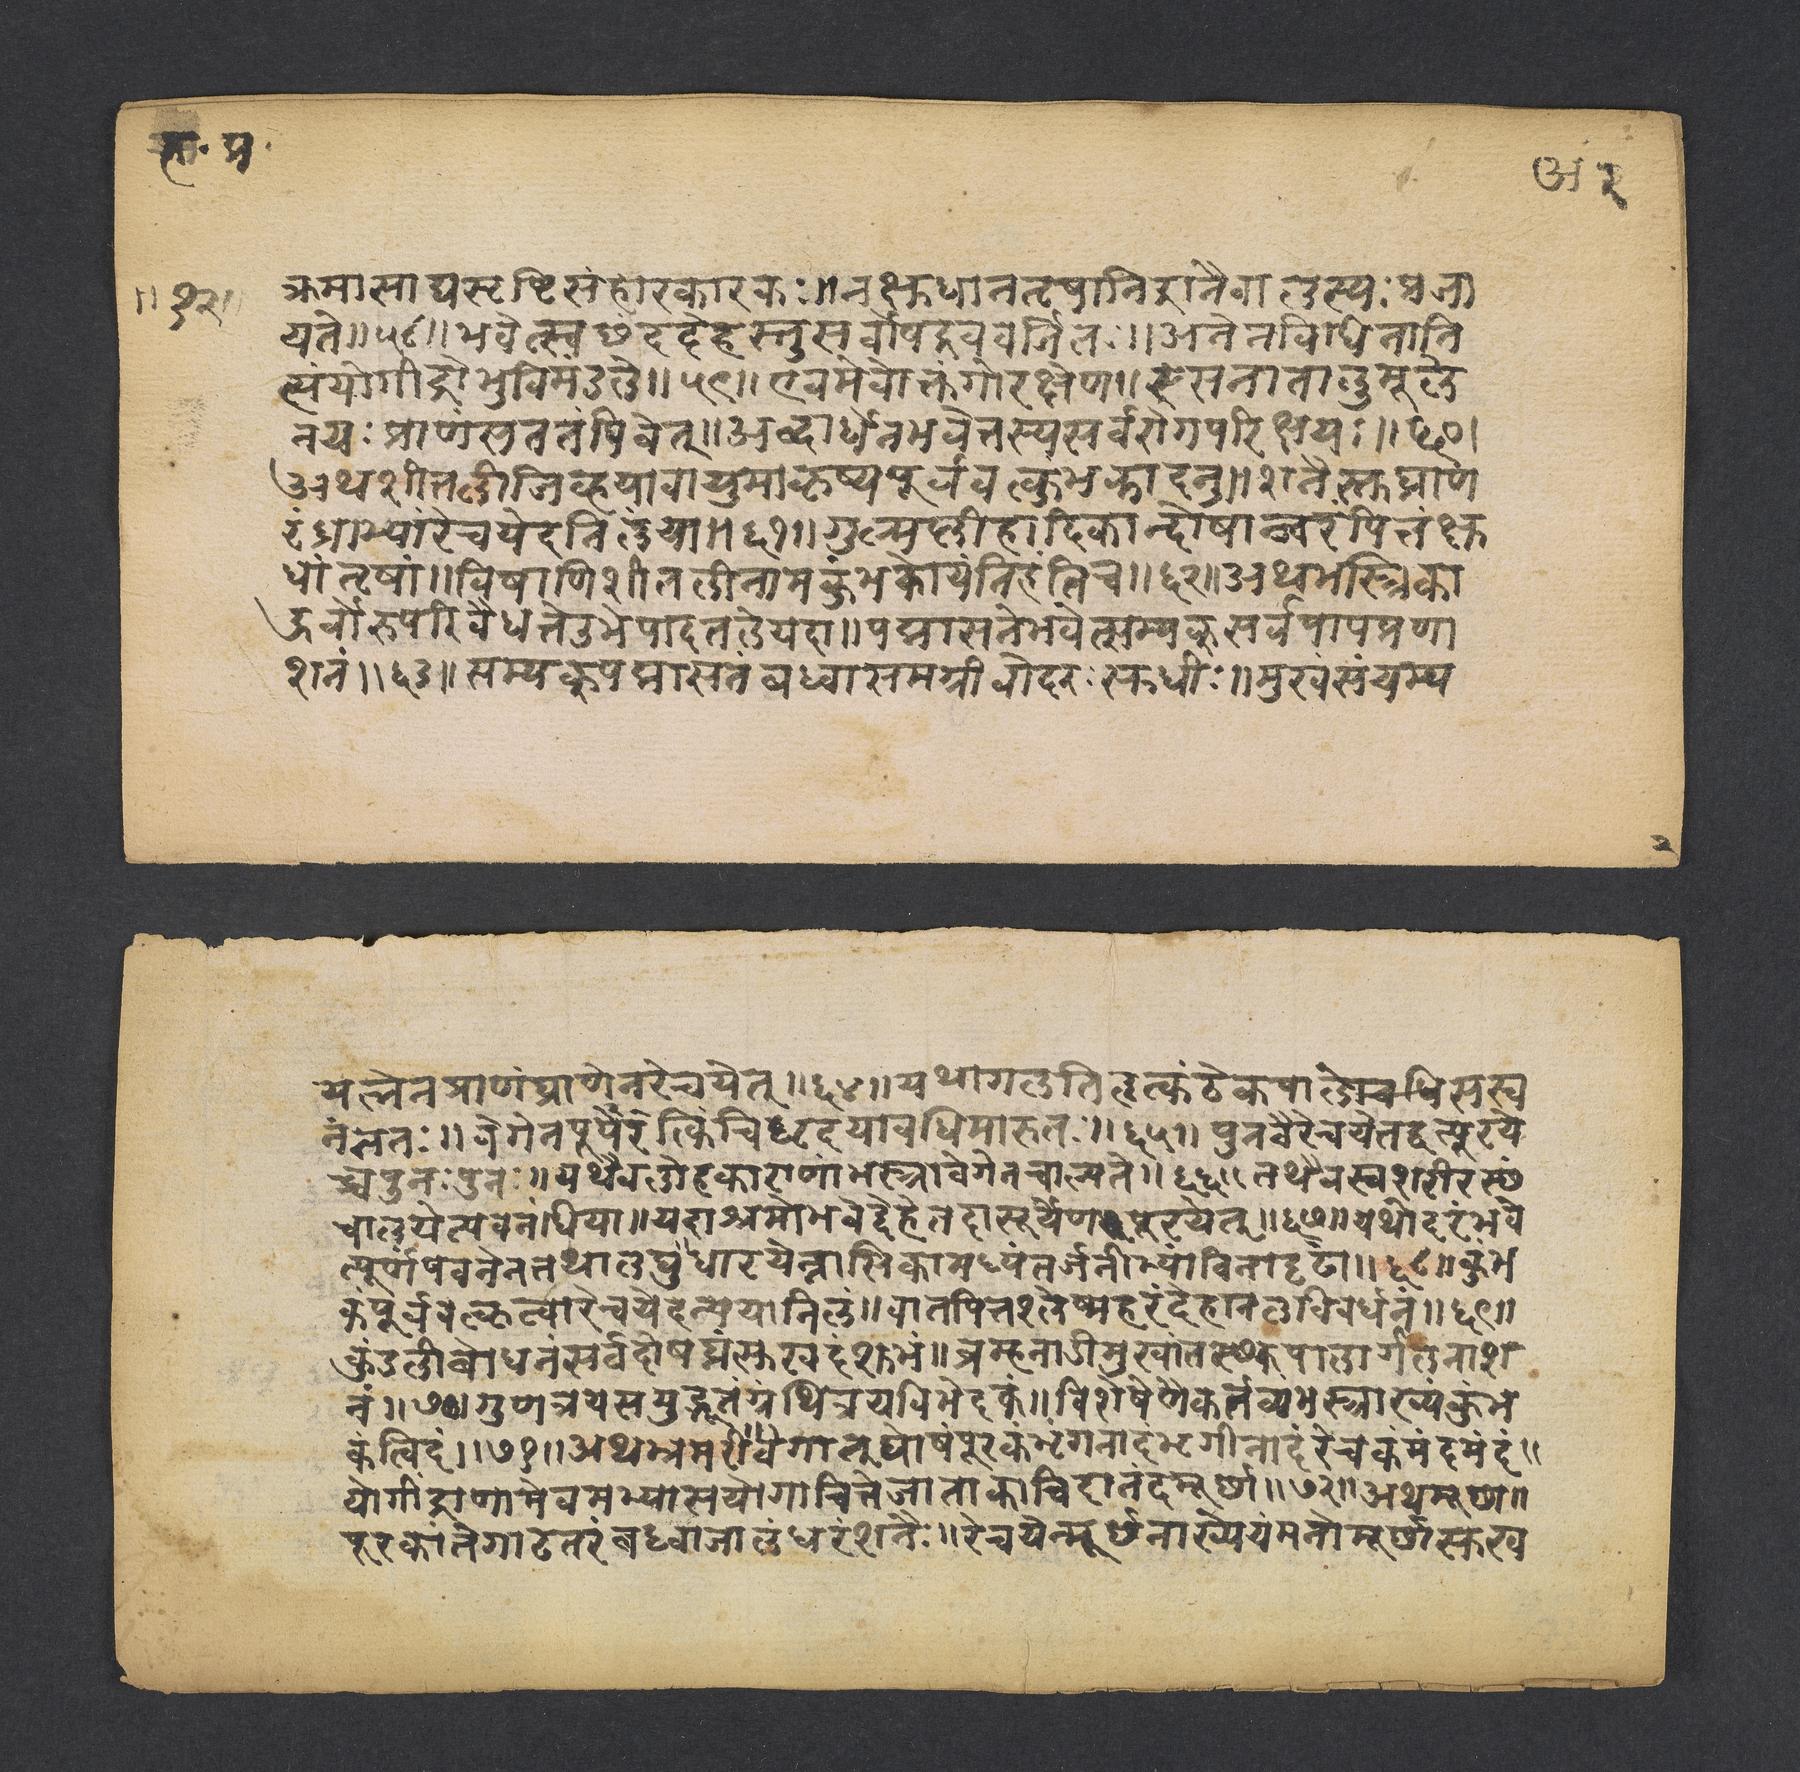 ह. प्र.
अ २
॥१२॥
क्रमासाद्यसृष्टिसंहारकारकः॥नक्षुधानतृषानिद्रानैवालस्यःप्रजा
यते॥५८॥भवेत्स्वछंददेहस्तुसर्वोपद्रववर्जितः॥अनेनविधिनानि
त्यंयोगींद्रोभुविमंडले॥५९॥एवमेवोक्तंगोरक्षेण॥रसनातालुमूले
नयःप्राणंसततंपिबेत्॥अब्दार्धेनभवेत्तस्यसर्वरोगपरिक्षयः॥६०।
अथशीतलीजिव्हयावायुमाकृष्यपूर्ववत्कुंभकादनु॥शनैस्तुघ्राण
रंध्राभ्यांरेचयेदनिलंधिया॥६१॥गुल्मप्लीहादिकान्दोषान्ज्वरंपित्तंक्षु
धांतृषां॥विषाणिशीतलीनामकुंभकोयंनिहंतिच॥६२॥अथभस्त्रिका
ऊर्वोरुपरिवैधत्तेउभेपादतलेयदा॥पद्मासनंभवेत्सम्यक्सर्वपापप्रणा
शनं॥६३॥सम्यक्पद्मासनंबध्वासमग्रीवोदरःसुधीः॥मुखंसंयम्य
२
यत्नेनप्राणंघ्राणेनरेचयेत्॥६४॥यथागलतिहृत्कंठेकपालेचधिसस्व
नंततः॥वेगेनपूरयेत्किंचिद्धृदयावधिमारुतः॥६५॥पुनर्वैरेचयेतद्वत्पूरये
च्चपुनःपुनः॥यथैवलोहकाराणांभस्त्रावेगेनचाल्यते॥६६॥तथैवस्वशरीरस्थं
चालयेत्पवनंधिया॥यदाश्रमोभवेद्देहेतदासूर्येणपूरयेत्॥६७॥यथोदरंभवे
त्पूर्णंपवनेनतथालघु॥धारयेन्नासिकामध्यंतर्जनीभ्यांविनादृढा॥६८॥कुंभ
कंपूर्ववत्कृत्वारेचयेदत्यायानिलं॥वातपित्तश्लेष्महरंदेहानलविवर्धनं॥६९॥
कुंडलीबोधनंसर्वदोषघ्नंसुखदंशुभं॥ब्रम्हनाडीमुखांतस्थंकपालार्गलनाश
नं॥७०॥गुणत्रयसमुद्भूतंग्रंथित्रयविभेदकं॥विशेषेणैकर्तव्यंभस्त्राख्यंकुंभ
कंत्विदं॥७१॥अथभ्रमरीवेगात्तुघोषंपूरकंभृंगनादंभृंगीनादंरेचकंमंदमंदं॥
योगींद्राणामेवमभ्यासयोगाचित्तेजाताकाचिदानंदमूर्छा॥७२॥अथमूर्छा॥
पूरकांतेगाढतरंबध्वाजालंधरंशनैः॥रेचयेन्मूर्छनाख्येयंमनोमूर्छासुख